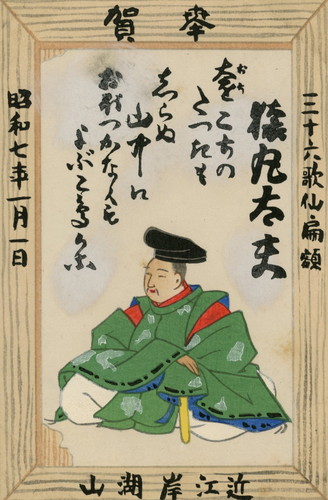 奉賀
三十六歌仙扁額
猿丸太夫
遠こちの
たつきも
しらぬ
山中に
おぼつかなくも
よぶこ鳥かな
昭和七年一月一日
近江岸湖山